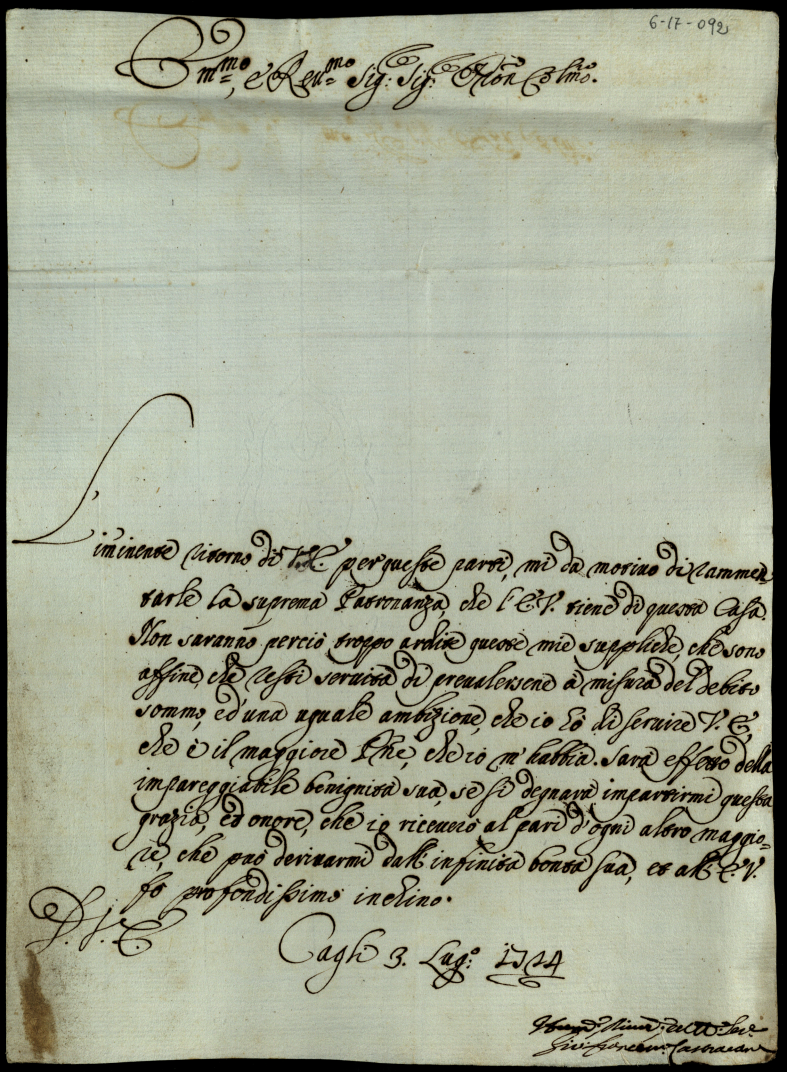 6-17-092
Em.mo, e Reu.mo Sig.r Sig.r P̄ron Col̄mo.
L'iminente ritorno di V.E. per queste parti, mi da motiuo di rammen
tarle la suprema Patronanza, che l'E.V. tiene di questa Casa.
Non saranno perciò troppo ardite queste mie suppliche, che sono
affine, che resti seruita di preualersene à misura del debito
sommo, ed'una uguale ambizione, che io hò di seruire V.E,
che è il maggiore P̄ne, che io m'habbia. Sarà effetto della
impareggiabile benignità sua, se si degnarà impartirmi questa
grazia, ed onore, che io riceuerò al pari d'ogni altro maggio=
re, che può deriuarmi dall'infinita bontà sua, et all'E.V.
fò profondissimo inchino.
D.V.E.
Cagli 3. Lug.o 1714
Giō: